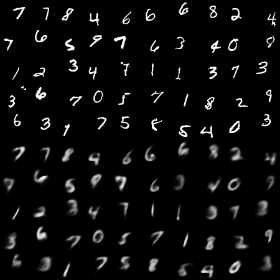 7 7 8 4 6 6 6 8 2 4
7 6 5 9 7 6 3 4 0 8
1 2 3 4 7 1 1 3 7 3
3 6 7 0 5 7 1 8 2 9
6 3 1 7 5 8 5 4 0 3
7 7 8 4 6 6 6 8 2 4
7 6 5 9 7 6 3 4 0 8
1 2 3 4 7 1 1 3 7 3
3 6 7 0 5 7 1 8 2 9
6 3 1 7 5 8 5 4 0 3